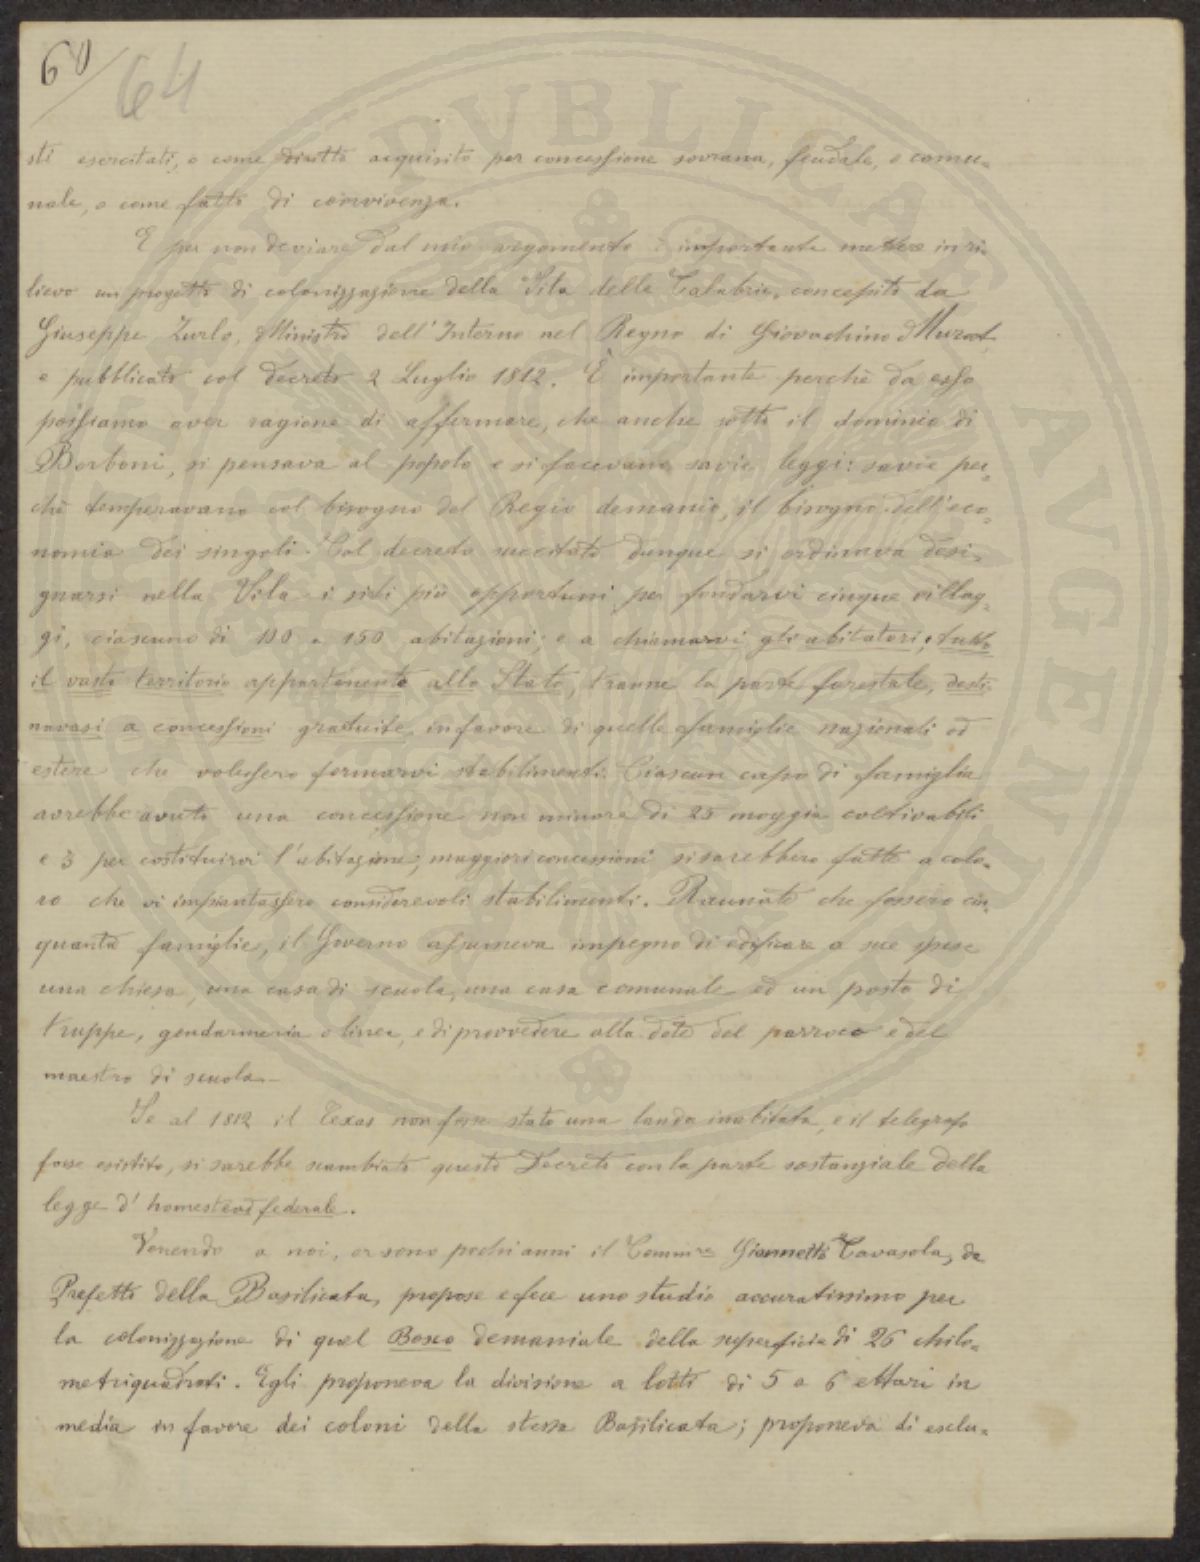 60/ 64
sti esercitati, o come diritto acquisito per concessione sovrana, feudale, o comu=
nale, o come fatto di convivenza.
E per non deviare dal mio argomento è importante mettere in ri=
lievo un progetto di colonizzazione della Sila delle Calabrie, concepito da
Giuseppe Zurlo, Ministro dell'Interno nel Regno di Giovachino Murat,
e pubblicato col decreto 2 Luglio 1812. È importante perchè da esso
possiamo aver ragione di affermare, che anche sotto il dominio di
Borboni, si pensava al popolo e si facevano savie leggi: savie per=
chè temperavano col bisogno del Regio demanio, il bisogno dell'eco=
nomia dei singoli. Col decreto succitato dunque si ordinava desi=
gnarsi nella Sila i siti più opportuni per fondarvi cinque villag=
gi, ciascuno di 100 a 150 abitazioni; e a chiamarvi gli abitatori; tutto
il vasto territorio appartenente allo Stato, tranne la parte forestale, desti=
navasi a concessioni gratuite in favore di quelle famiglie nazionali od
estere che volessero formarvi stabilimenti. Ciascun capo di famiglia
avrebbe avuto una concessione non minore di 25 moggia coltivabili
e 3 per costituirvi l'abitazione; maggiori concessioni si sarebbero fatte a colo=
ro che vi impiantassero considerevoli stabilimenti. Raunate che fossero cin=
quanta famiglie, il Governo assumeva impegno di edificare a sue spese
una chiesa, una casa di scuola, una casa comunale ed un posto di
truppe, gendarmeria o linea, e di provvedere alla dote del parroco e del
maestro di scuola.-
Se al 1812 il Texas non fosse stato una landa inabitata, e il telegrafo
fosse esistito, si sarebbe scambiato questo Decreto con la parte sostanziale della
legge d'homestead federale.
Venendo a noi, or sono pochi anni il Comm.re Giannetto Cavasola, da
Prefetto della Basilicata, propose e fece uno studio accuratissimo per
la colonizzazione di quel Bosco demaniale della superficie di 26 chilo=
metri quadrati. Egli proponeva la divisione a lotti di 5 a 6 ettari in
media in favore dei coloni della stessa Basilicata; proponeva di esclu=
PVBLICAE AVGENDAE